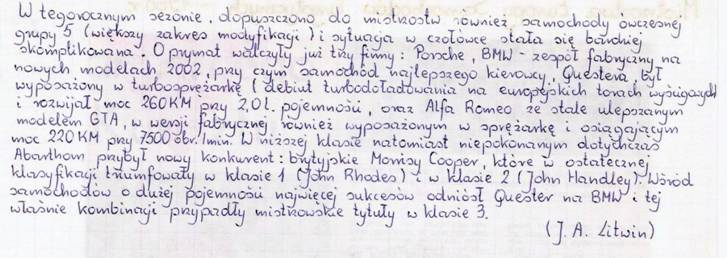 W tegorocznym sezonie, dopuszczono do mistrzostw również samochody ówczesnej
grupy 5 (większy zakres modyfikacji) i sytuacja w czołówce stała się bardziej
skomplikowana. O prymat walczyły już trzy firmy: Porsche, BMW - zespół fabryczny na
nowych modelach 2002, przy czym samochód najlepszego kierowcy, Questera, był
wyposażony w turbosprężarkę (debiut turbodoładowania na europejskich torach wyścigowych)
i rozwijał moc 260 KM przy 2,0 l. pojemności, oraz Alfa Romeo ze stale ulepszanym
modelem GTA, w wersji fabrycznej również wyposażonym w sprężarkę i osiągającym
moc 220 KM przy 7500 obr./min. W niższej klasie natomiast niepokonanym dotychczas
Abarthom przybył nowy konkurent: brytyjskie Morrisy Cooper, które w ostatecznej
klasyfikacji triumfowały w klasie 1 (John Rhodes) i w klasie 2 (John Handley). Wśród
samochodów o dużej pojemności najwięcej sukcesów odniósł Quester na BMW i tej
właśnie kombinacji przypadły mistrzowskie tytuły w klasie 3.
(J. A. Litwin)